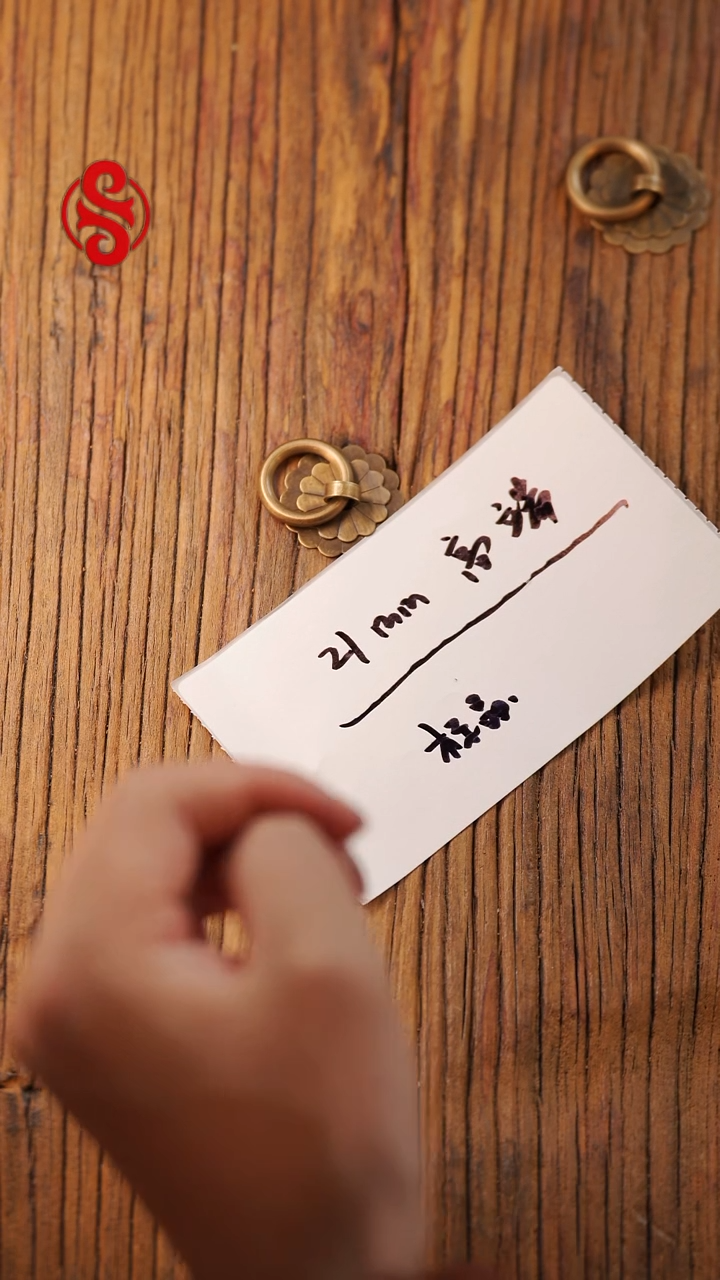 21mm 高端
样品.